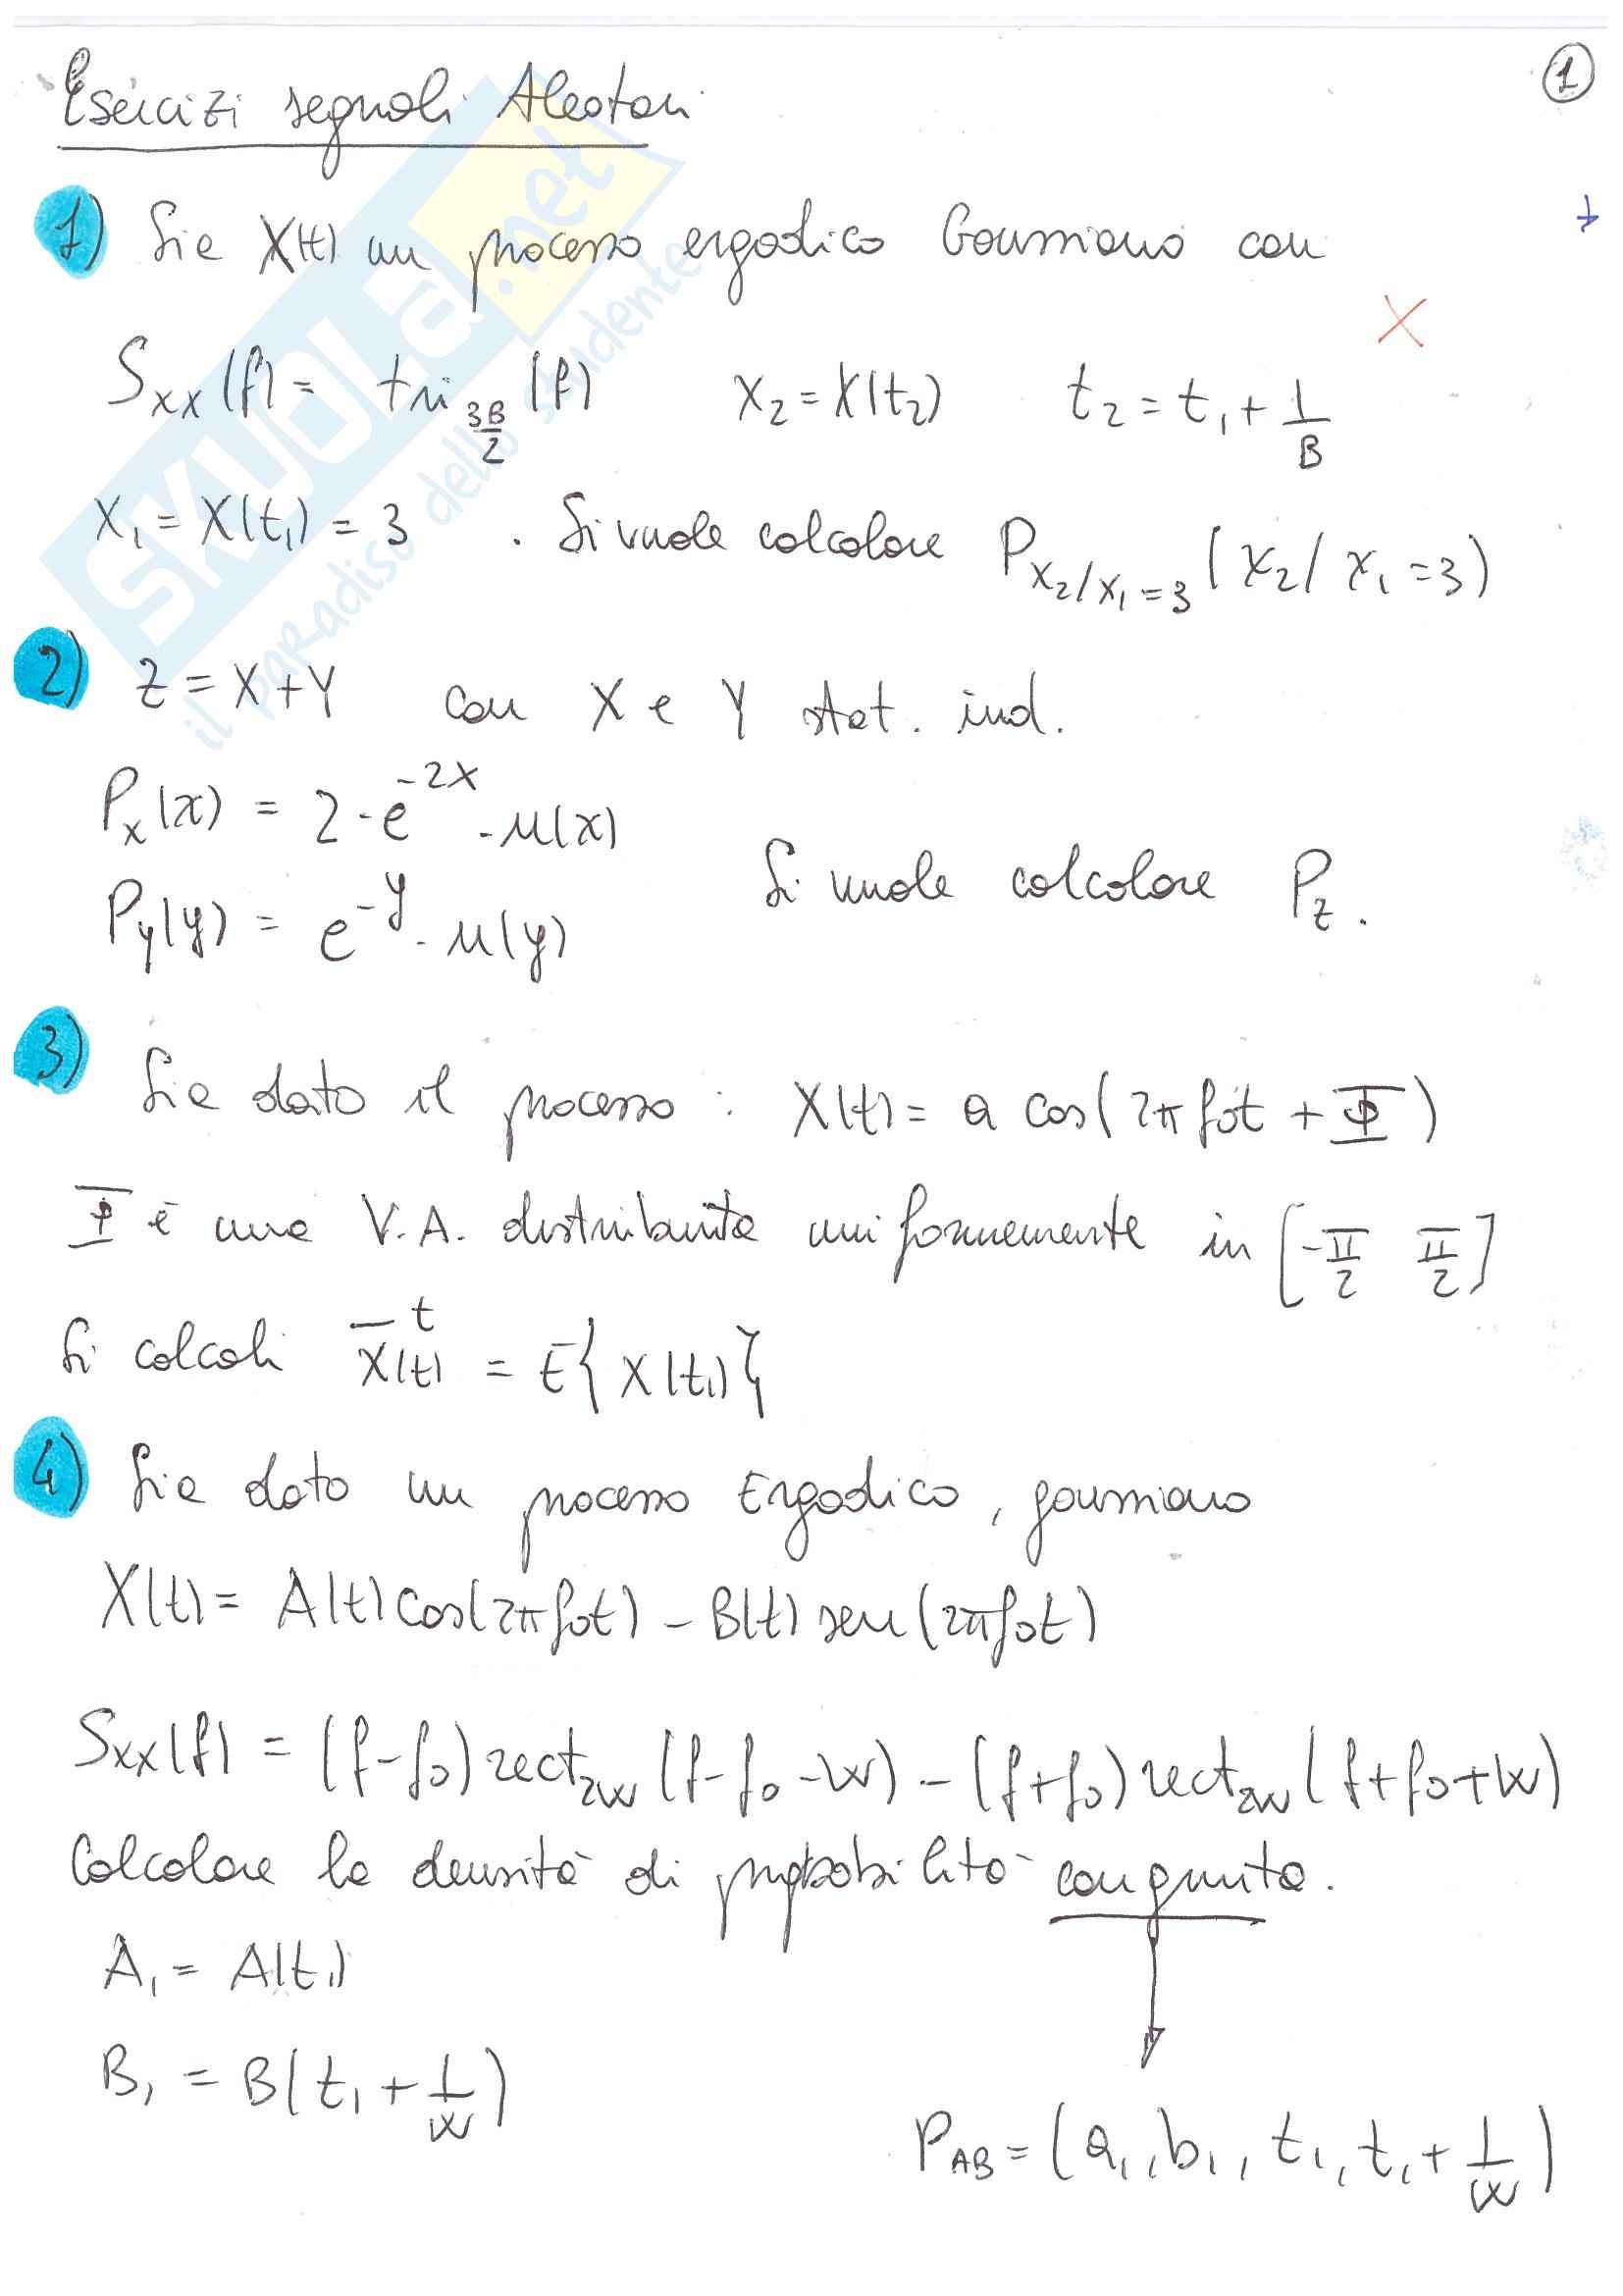 Esercizi segnali Aleatori
1
1) Sia X(t) un processo ergodico Gaussiano con
Sxx(f) = tri 3B/2 (f) X2 = X(t2) t2 = t1 + 1/B
X1 = X(t1) = 3 . Si vuole calcolare P X2/X1=3 (X2/X1=3)
2) Z = X+Y con X e Y stat. ind.
Px(x) = 2·e^-2x · u(x)
Si vuole calcolare Pz.
Py(y) = e^-y · u(y)
3) Sia dato il processo : X(t) = a cos(2π f0t + Φ)
Φ è una V.A. distribuita uniformemente in [-π/2 π/2]
Si calcoli X(t)^t = E{X(t1)}
4) Sia dato un processo Ergodico, gaussiano
X(t) = A(t) cos(2πf0t) - B(t) sen(2πf0t)
Sxx(f) = (f-f0) rect2W (f-f0-W) - (f+f0) rect2W (f+f0+W)
Calcolare la densità di probabilità congiunta.
A1 = A(t1)
B1 = B(t1 + 1/W)
PAB = (a1, b1, t1, t1 + 1/W)
SKUOLa.net
il paradiso dello studente